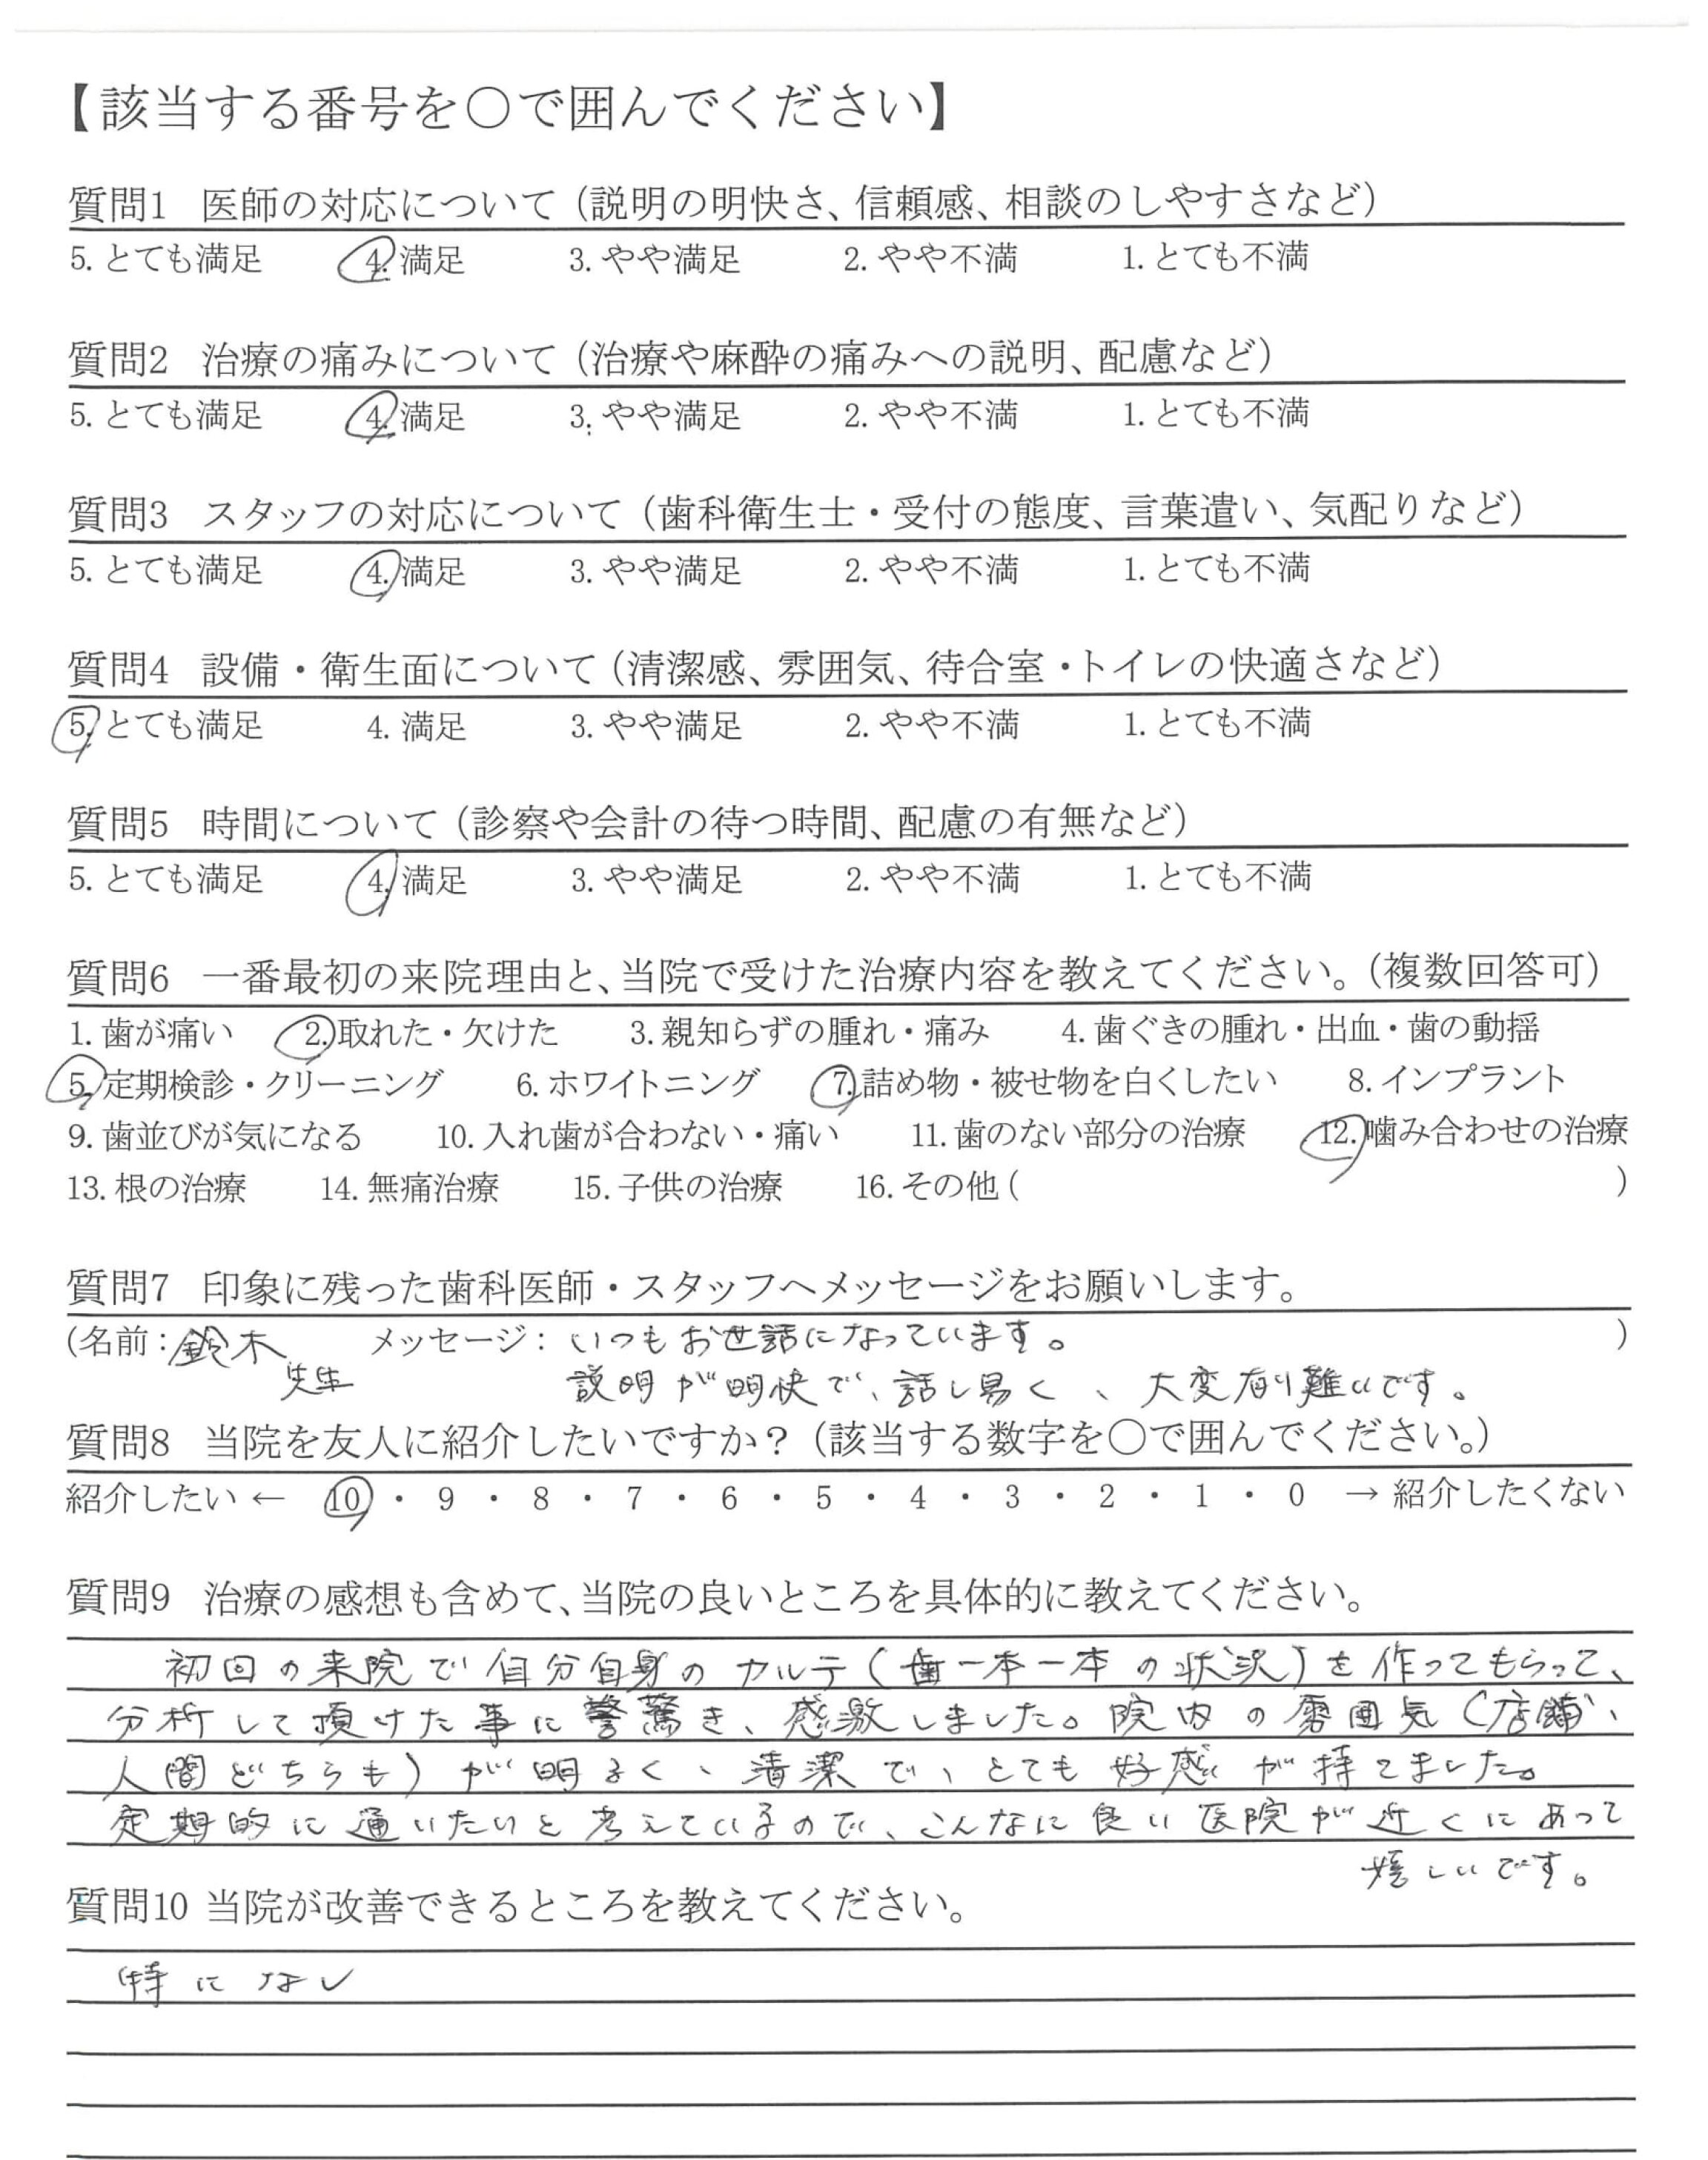 【該当する番号を○で囲んでください】
質問1 医師の対応について（説明の明快さ、信頼感、相談のしやすさなど）
5. とても満足 4. 満足 3. やや満足 2. やや不満 1. とても不満
質問2 治療の痛みについて（治療や麻酔の痛みへの説明、配慮など）
5. とても満足 4. 満足 3. やや満足 2. やや不満 1. とても不満
質問3 スタッフの対応について（歯科衛生士・受付の態度、言葉遣い、気配りなど）
5. とても満足 4. 満足 3. やや満足 2. やや不満 1. とても不満
質問4 設備・衛生面について（清潔感、雰囲気、待合室・トイレの快適さなど）
5. とても満足 4. 満足 3. やや満足 2. やや不満 1. とても不満
質問5 時間について（診察や会計の待つ時間、配慮の有無など）
5. とても満足 4. 満足 3. やや満足 2. やや不満 1. とても不満
質問6 一番最初の来院理由と、当院で受けた治療内容を教えてください。（複数回答可）
1. 歯が痛い 2. 取れた・欠けた 3. 親知らずの腫れ・痛み 4. 歯ぐきの腫れ・出血・歯の動揺
5. 定期検診・クリーニング 6. ホワイトニング 7. 詰め物・被せ物を白くしたい 8. インプラント
9. 歯並びが気になる 10. 入れ歯が合わない・痛い 11. 歯のない部分の治療 12. 噛み合わせの治療
13. 根の治療 14. 無痛治療 15. 子供の治療 16. その他（ ）
質問7 印象に残った歯科医師・スタッフへメッセージをお願いします。
（名前：鈴木 メッセージ：いつもお世話になっています。 ）
先生 説明が明快で、話し易く、大変有り難いです。
質問8 当院を友人に紹介したいですか？（該当する数字を○で囲んでください。）
紹介したい ← 10 ・ 9 ・ 8 ・ 7 ・ 6 ・ 5 ・ 4 ・ 3 ・ 2 ・ 1 ・ 0 → 紹介したくない
質問9 治療の感想も含めて、当院の良いところを具体的に教えてください。
初回の来院で自分自身のカルテ（歯一本一本の状況）を作ってもらって、
分析して頂けた事に驚き、感激しました。院内の雰囲気（店舗、
人間どちらも）が明るく、清潔で、とても好感が持てました。
定期的に通いたいと考えているので、こんなに良い医院が近くにあって
嬉しいです。
質問10 当院が改善できるところを教えてください。
特になし